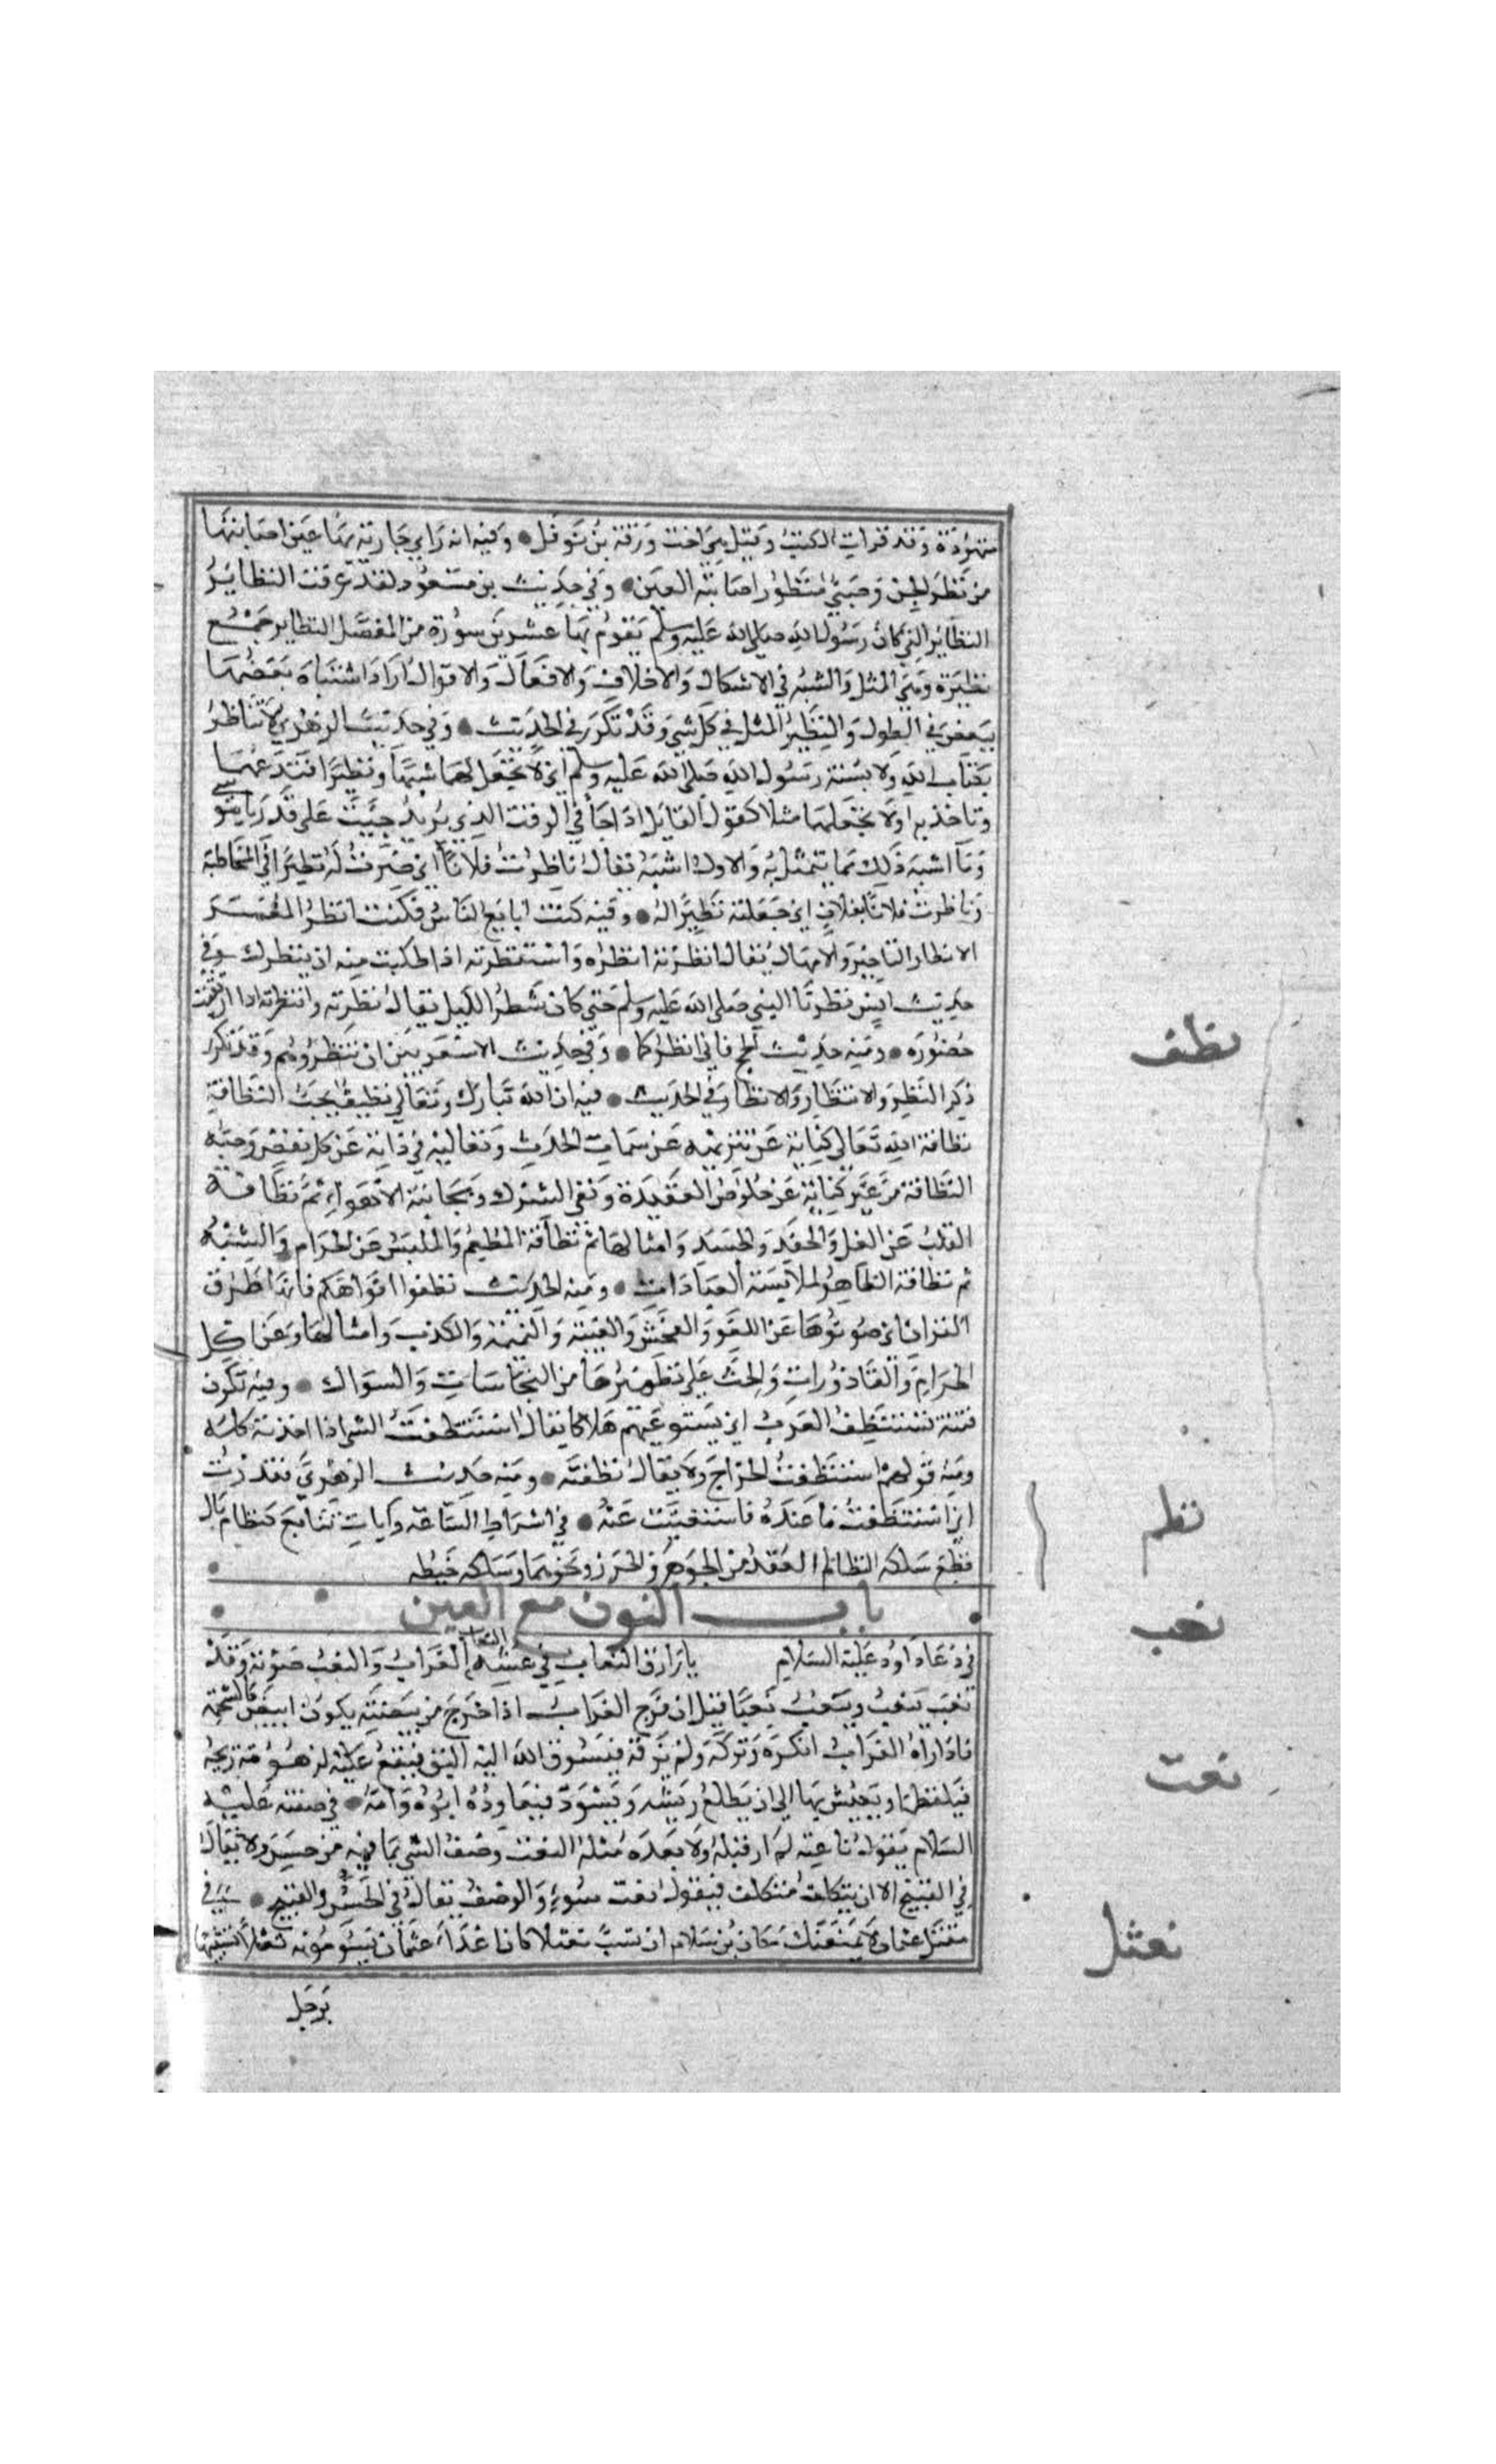 متهودة وقد قرات الكتب وقيل هي اخت ورقة بن نوفل وفيه انه راي جارية بها عين اصابتها
من نظر الجن وصبي منظور اصابته العين وفي حديث بن مسعود لقد عرفت النظاير
النظاير التي كان رسول الله صلى الله عليه وسلم يقوم بها عشرين سورة من المفصل النظاير جمع
نظيرة وهي المثل والشبه في الاشكال والاخلاف والافعال والاقوال اراد اشتباه بعضها
ببعض في الطول والنظير المثل في كل شي وقد تكرر في الحديث وفي حديث الزهري لا تناظر
بكتاب الله ولا بسنة رسول الله صلى الله عليه وسلم اي لا تجعل لهما شبها ونظيرا فتدعهما
وتاخذ به او لا تجعلهما مثلا كقول القايل اذا جأ في الوقت الذي يريد جيت على قدر يا موسى
وما اشبه ذلك مما يتمثل به والاول اشبه يقال ناظرت فلانا اي صرت له نظيرا في المخاطبة
وناظرت فلانا بفلان اي جعلته نظيرا له وفيه كنت ابايع الناس فكنت انظر المعسر
الانظار التاخير والامهال يقال انظرته انظره واستنظرته اذا طلبت منه ان ينظرك وفي
حديث انس نظرنا النبي صلى الله عليه وسلم حتى كان شطر الليل يقال نظرته وانتظرته اذا ارتقبت
حضوره ومنه حديث الحج فاني انظركما وفي حديث الاشعريين ان تنظروهم وقد تكرر
ذكر النظر والانتظار والانظار في الحديث فيه ان الله تبارك وتعالى نظيف يحب النظافة
نظافة الله تعالى كناية عن تنزيهه عن سمات الحدث وتعاليه في ذاته عن كل نقص وحبه
النظافة من غيره كناية عن خلوص العقيدة ونفي الشرك ومجانبة الاهواء ثم نظافة
القلب عن الغل والحقد والحسد وامثالها ثم نظافة المطعم والملبس عن الحرام والشبه
ثم نظافة الظاهر لملابسة العبادات ومنه الحديث نظفوا افواهكم فانها طرق
القران اي صونوها عن اللغو والفحش والغيبة والنميمة والكذب وامثالها وعن اكل
الحرام والقاذورات والحث على تطهيرها من النجاسات والسواك وفيه تكون
فتنة تستنظف العرب اي تستوعبهم هلاكا يقال استنظفت الشي اذا اخذته كله
ومنه قولهم استنظفت الخراج ولا يقال نظفته ومنه حديث الزهري فقدرت
اني استنظفت ما عنده فاستغنيت عنه في اشراط الساعة وايات تتابع كنظام بال
قطع سلكه النظام العقد من الجوهر والخرز ونحوهما وسلكه خيطه
باب النون مع العين
في دعا داود عليه السلام يا رازق النعاب في عشه النعاب الغراب والنعب صوته وقد
نعب ينعب وينعب نعبا قيل ان فرخ الغراب اذا خرج من بيضته يكون ابيض كالشحمة
فاذا راه الغراب انكره وتركه ولم يزقه فيسوق الله اليه البق فيقع عليه لزهومة ريحه
فيلقطها ويعيش بها الى ان يطلع ريشه ويسود فيعاوده ابوه وامه في صفته عليه
السلام يقول ناعته لم ار قبله ولا بعده مثله النعت وصف الشي بما فيه من حسن ولا يقال
في القبيح الا ان يتكلف متكلف فيقول نعت سوء والوصف يقال في الحسن والقبيح في
مقتل عثمان لا يمنعنك مكان بن سلام ان تسب نعثلا كان اعداء عثمان يسمونه نعثلا تشبيها
برجل
نظف
نظم
نعب
نعت
نعثل